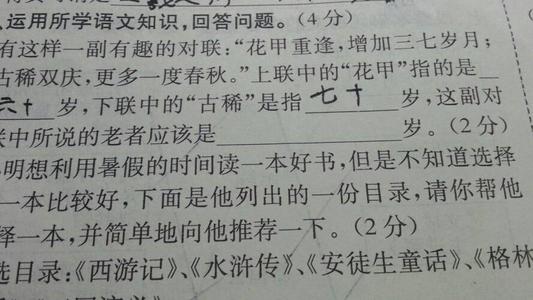 、运用所学语文知识,回答问题。(4分)
有这样一副有趣的对联:“花甲重逢,增加三七岁月;
古稀双庆,更多一度春秋。”上联中的“花甲”指的是
六十岁,下联中的“古稀”是指七十岁,这副对
联中所说的老者应该是岁。(2分)
明想利用暑假的时间读一本好书,但是不知道选择
一本比较好,下面是他列出的一份目录,请你帮他
择一本,并简单地向他推荐一下。(2分)
选目录:《西游记》、《水浒传》、《安徒生童话》、《格林